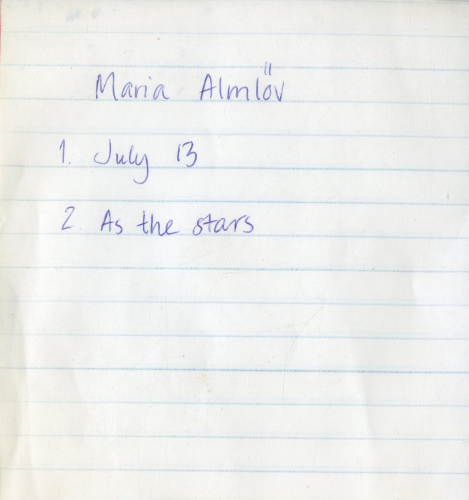 Maria Almlöv
1. July 13
2. As the stars